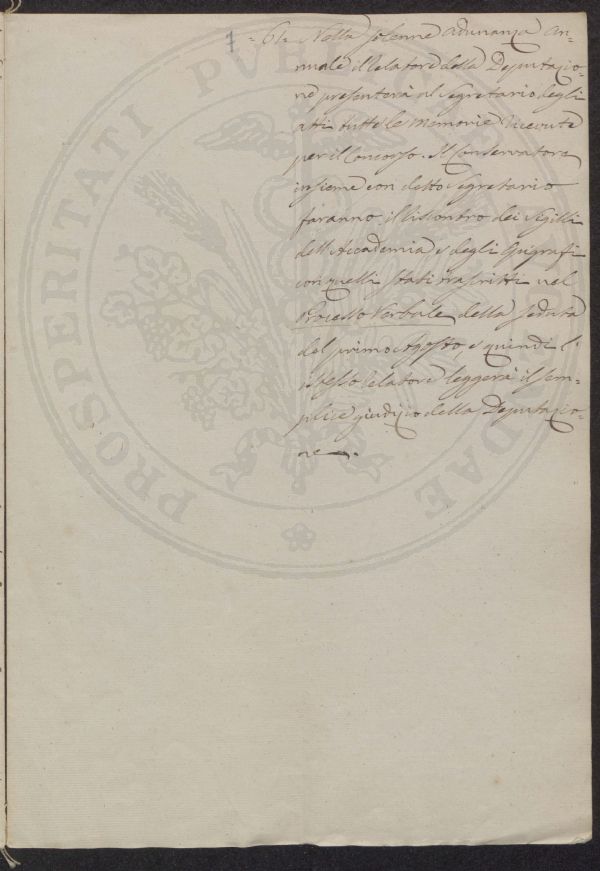 = 61. Nella solenne adunanza an=
nuale il Relatore della Deputazio=
ne presenterà al Segretario degli
atti tutte le Memorie ricevute
per il Concorso. Il Conservatore
insieme con detto Segretario
faranno il riscontro dei Sigilli
dell'Accademia e degli Epigrafi
con quelli stati trascritti nel
Processo Verbale della seduta
del primo Agosto, e quindi l'
istesso Relatore leggerà il sem=
plice giudizio della Deputazio=
ne.
PROSPERITATI PVBLICAE